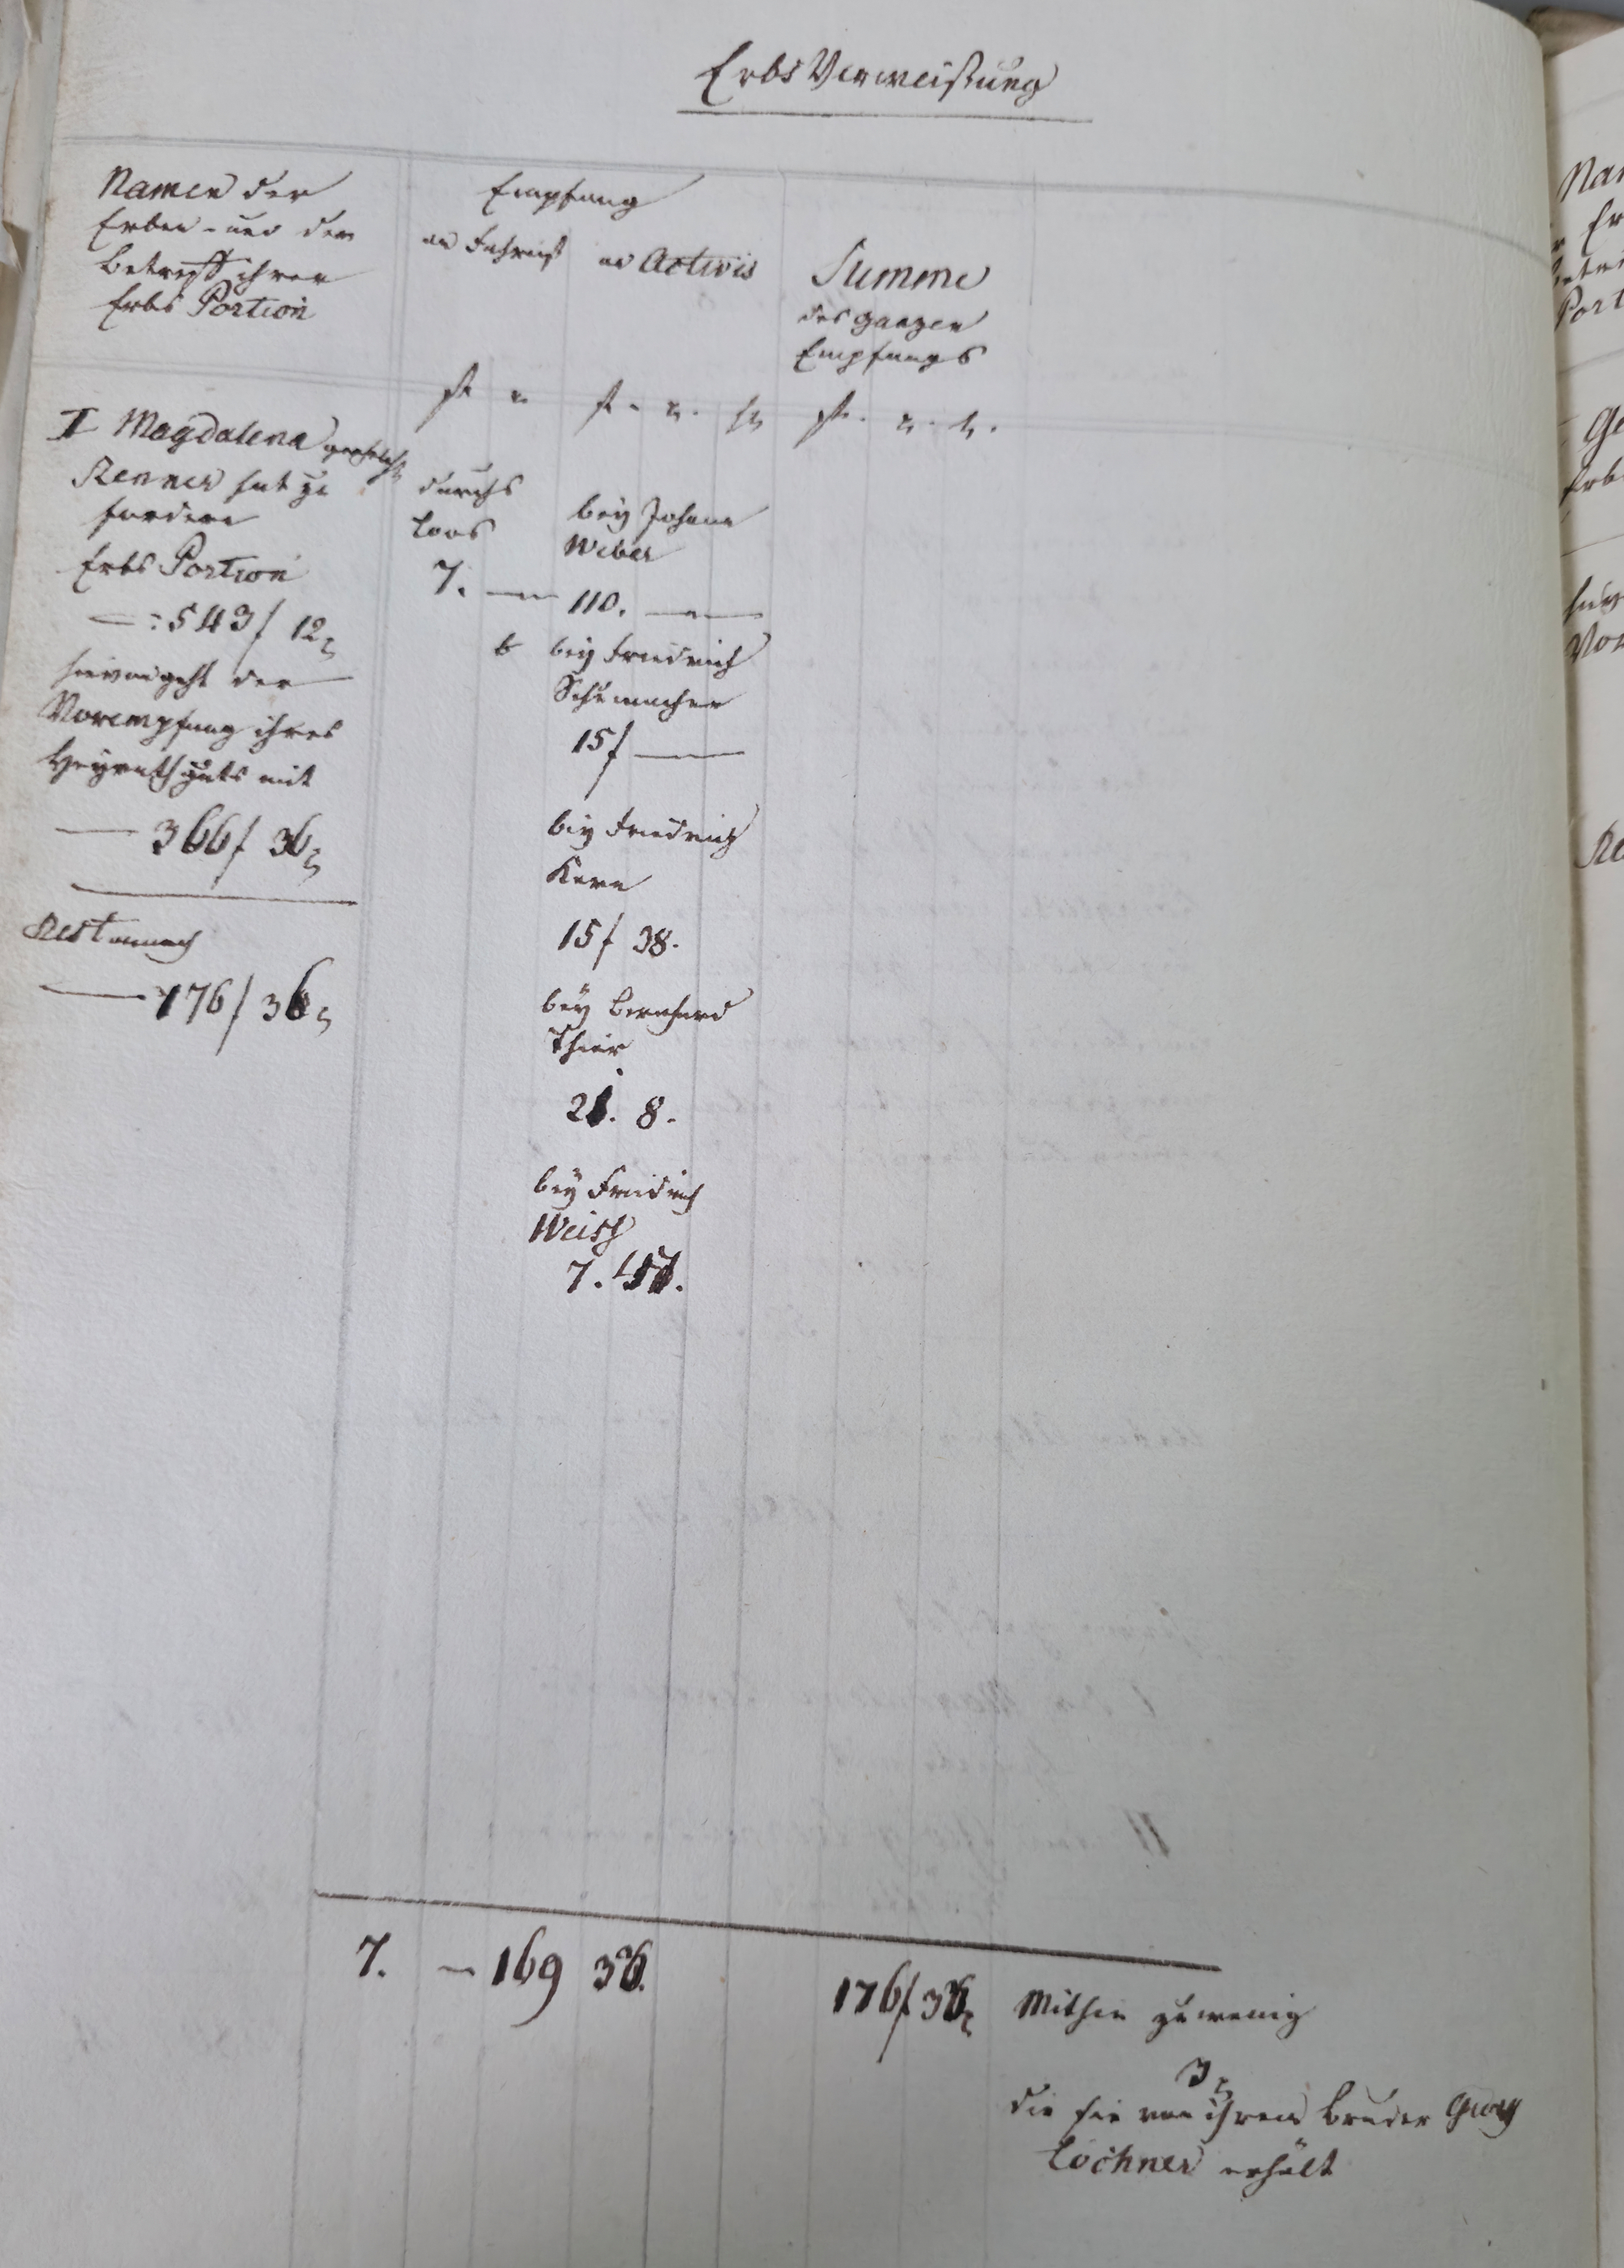 Erbs Verweisung
Namen der
Erben - und der
Betreff ihrer
Erbs Portion
Empfang
an Fahrniß an Activis
Summe
des ganzen
Empfangs
f x f. x. h f. x. h.
I Magdalena verehelicht
Renner hat zu
fordern
Erbs Portion
—: 543 f 12 x
hievon geht der
Vorempfang ihres
Heyrathguts mit
— 366 f 36 x
Rest annoch
— 176 f 36 x
durchs
Loos
7. —
bey Johann
Weber
110. —
bey Friedrich
Schumacher
15 f —
bey Friedrich
Kern
15 f 38.
bey Bernhard
Thier
21. 8.
bey Friedrich
Weiss
7.
7. — 169
176 f
Mithin zu wenig
3 x
die sie von ihrem Bruder Georg
Lochner erhält